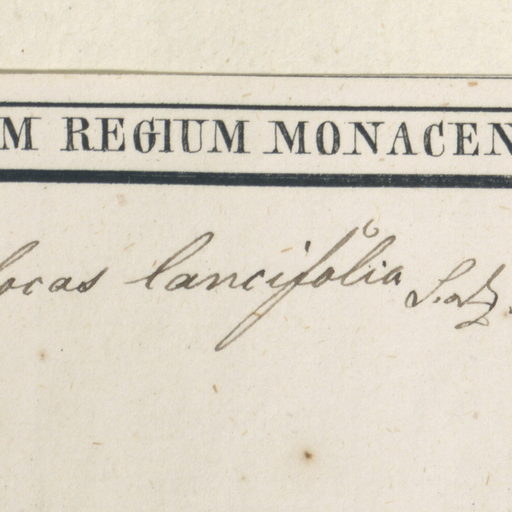 M REGIUM MONACEN
ocas lancifolia S. & Z.